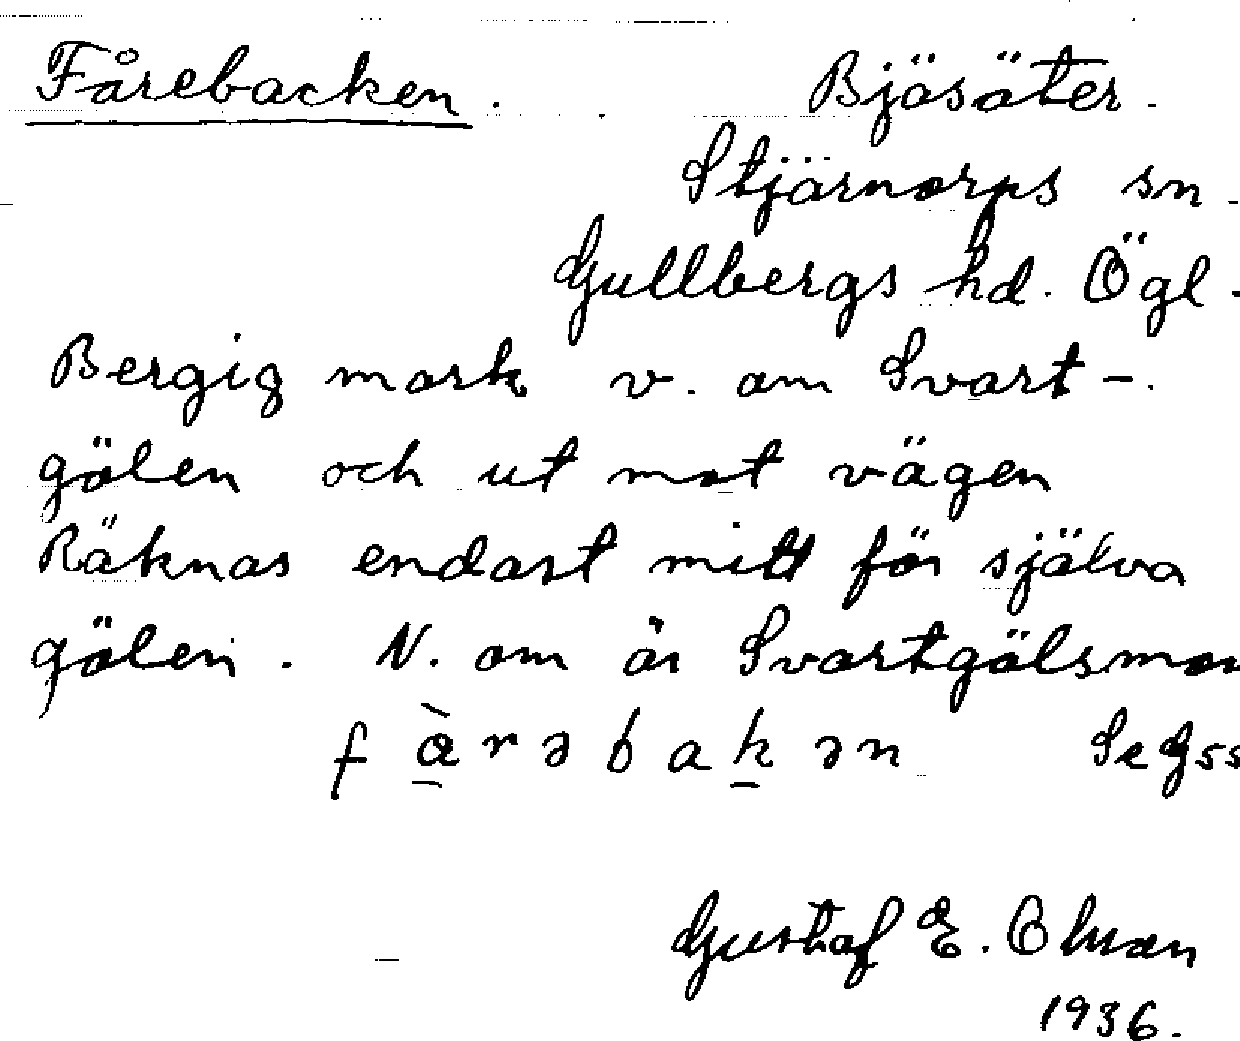 Fårebacken. Bjäsäter.
Stjärnorps sn.
Gullbergs hd. Ögl.
Bergig mark v. om Svart-
gölen och ut mot vägen
Räknas endast mitt för själva
gölen. N. om är Svartgölsmon
fàrəbakən Se Gss
Gustaf E. Olsson
1936.